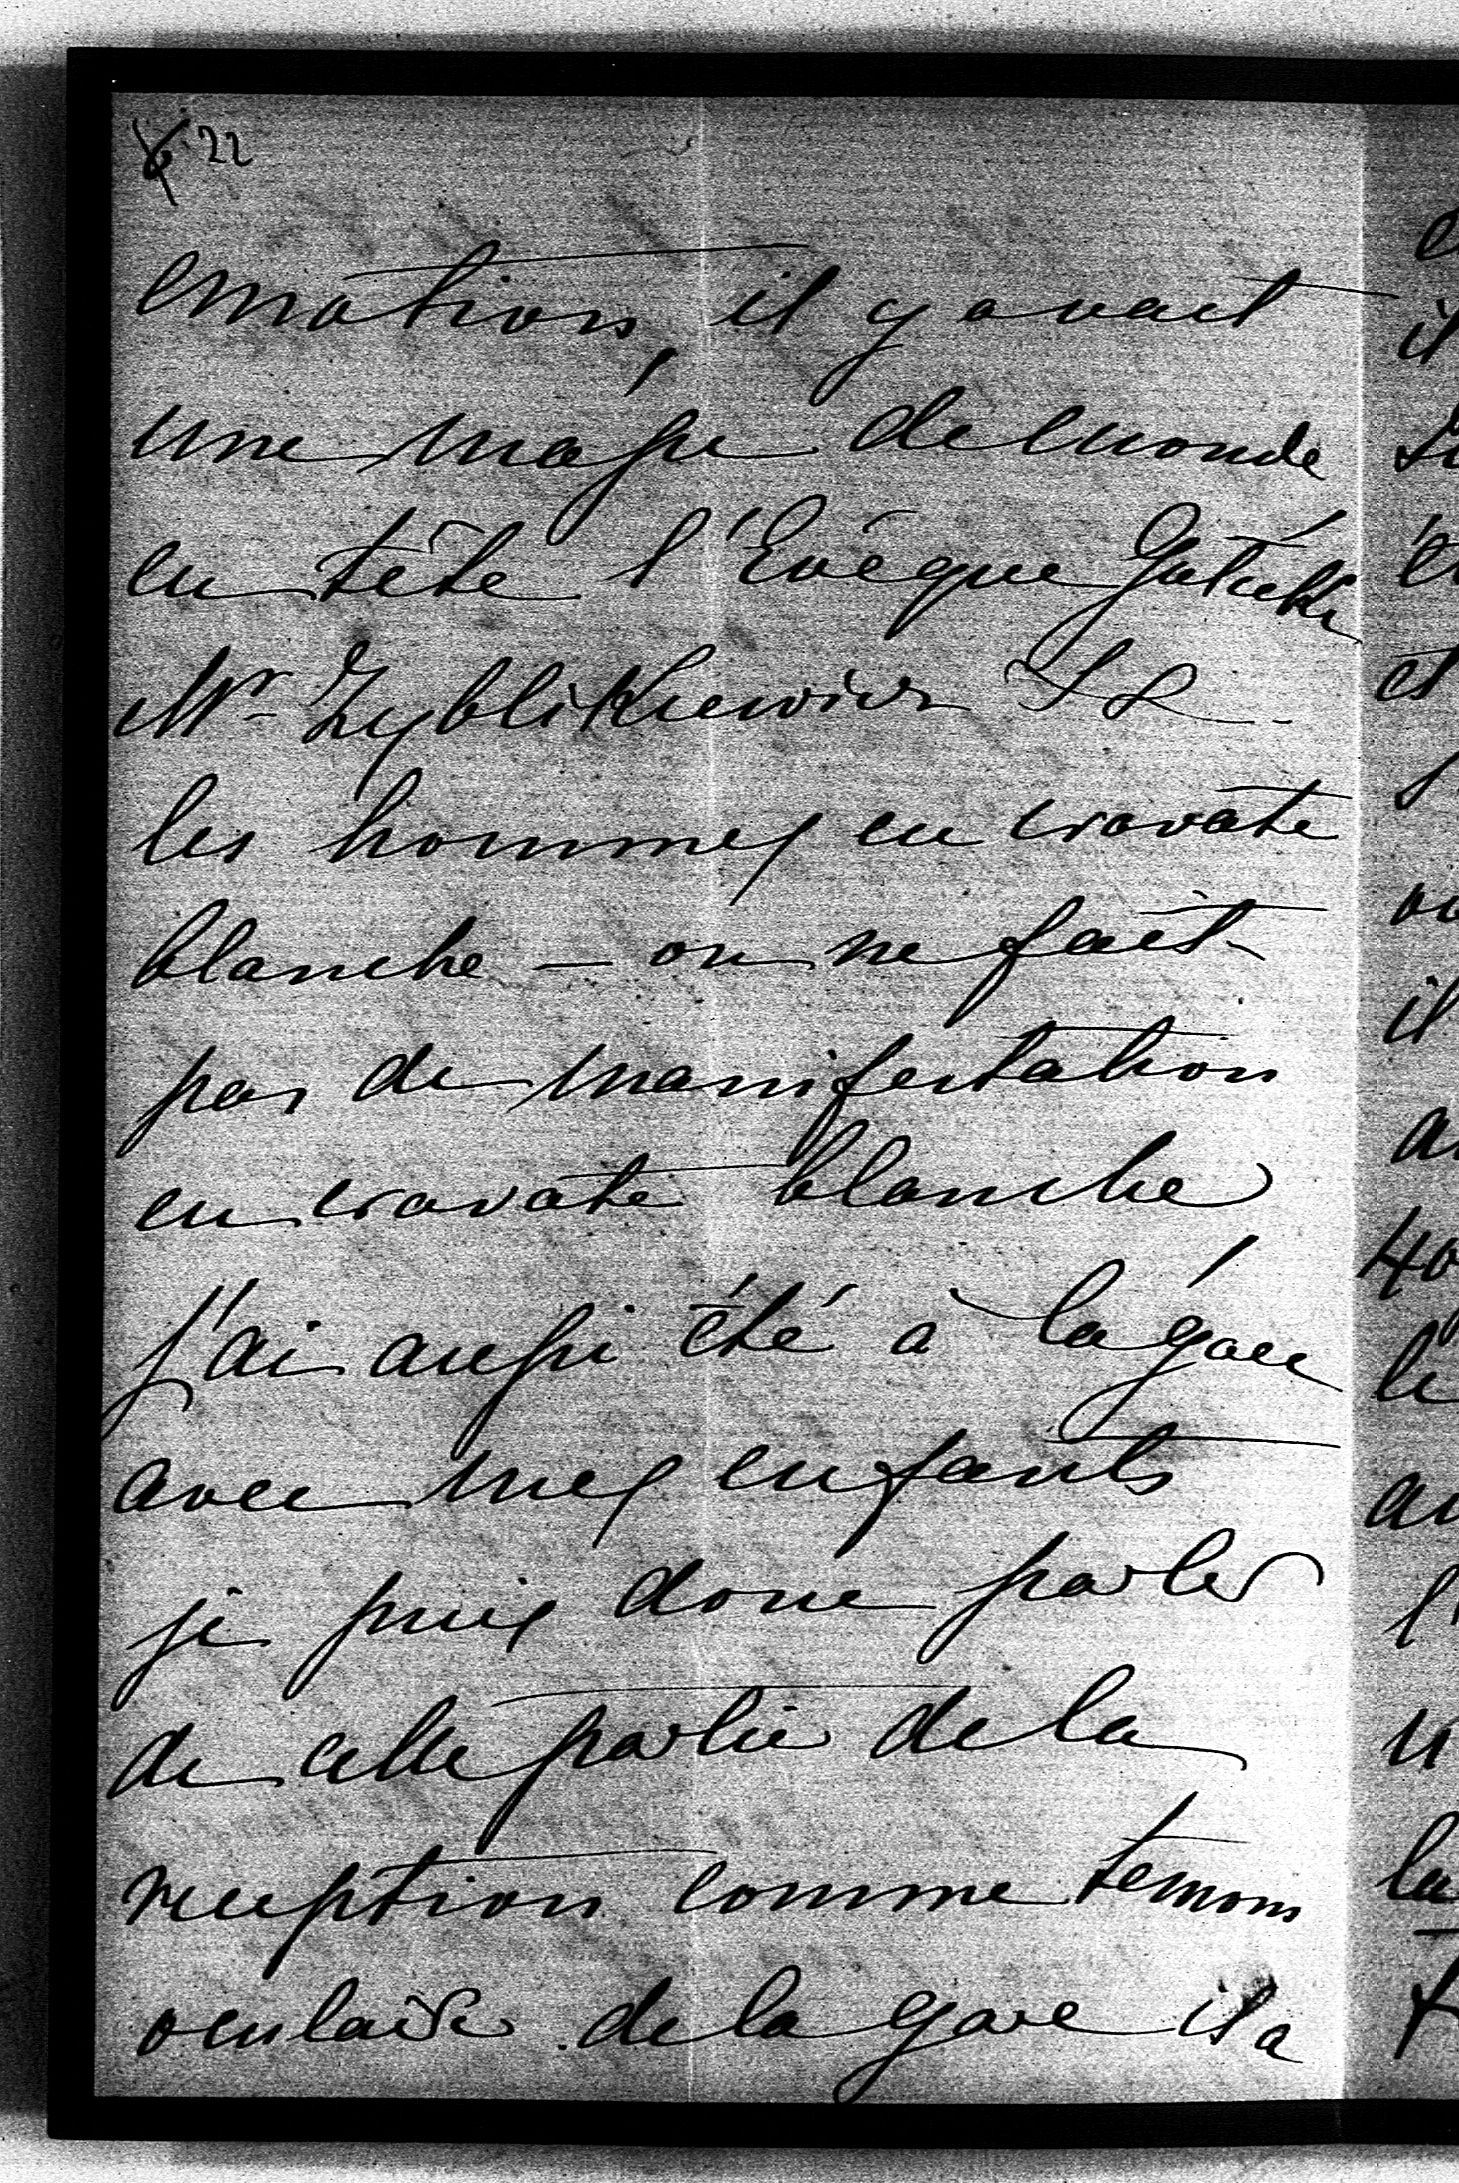 22
emotion, il y avait
une masse de monde
en tête l'Evêque Gałecki
Mr Zyblikiewicz
les hommes en cravate
blanche — on ne fait
pas de manifestation
en cravate blanche
j'ai aussi été à la gare
avec mes enfants
je puis donc parler
de cette partie de la
reception comme temoin
oculaire. de la gare il a